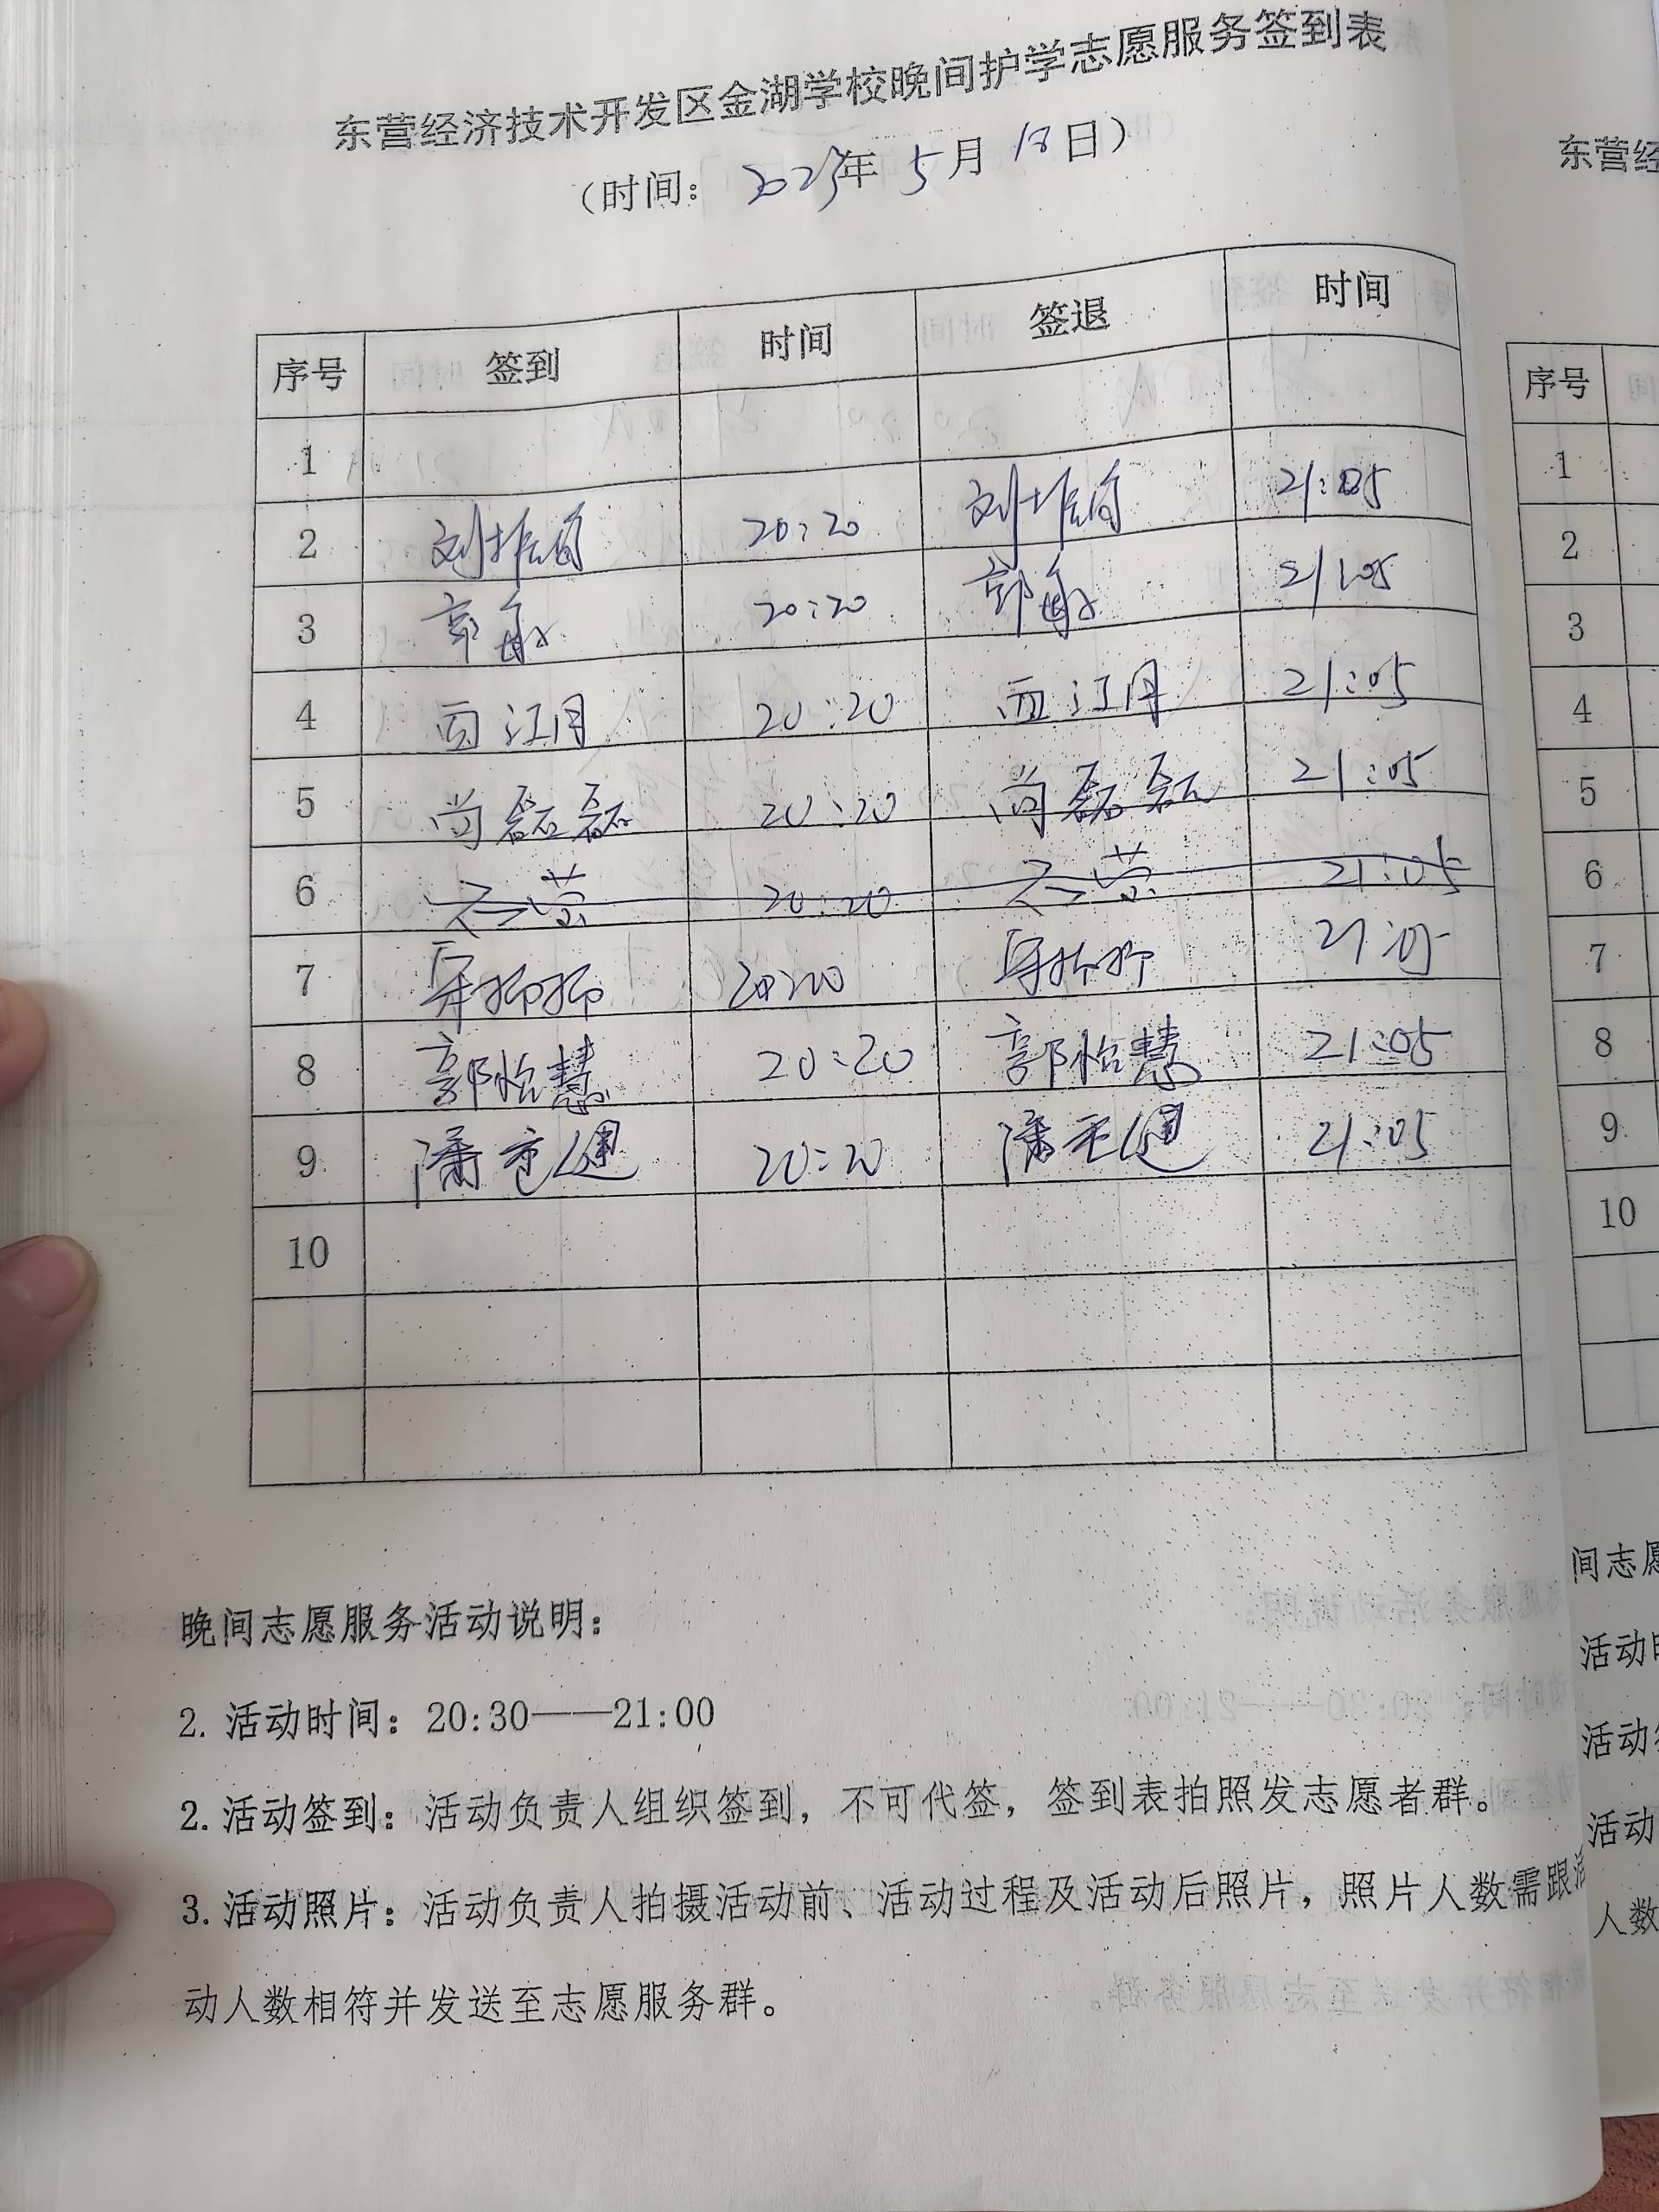 东营经济技术开发区金湖学校晚间护学志愿服务签到表
（时间： 2023年 5月 18日）
序号 签到 时间 签退 时间
1
2 刘 20:20 刘 21:05
3 郭敏 20:20 郭敏 21:05
4 西江月 20:20 西江月 21:05
5 尚磊磊 20:20 尚磊磊 21:05
6 20:20 21:05
7 20:20 21:05
8 郭怡慧 20:20 郭怡慧 21:05
9 潘 20:20 潘 21:05
10
晚间志愿服务活动说明：
2. 活动时间：20:30——21:00
2. 活动签到：活动负责人组织签到，不可代签，签到表拍照发志愿者群。
3. 活动照片：活动负责人拍摄活动前、活动过程及活动后照片，照片人数需跟活
动人数相符并发送至志愿服务群。
东营经
序号
1
2
3
4
5
6
7
8
9
10
间志愿
活动
活动
活动
人数